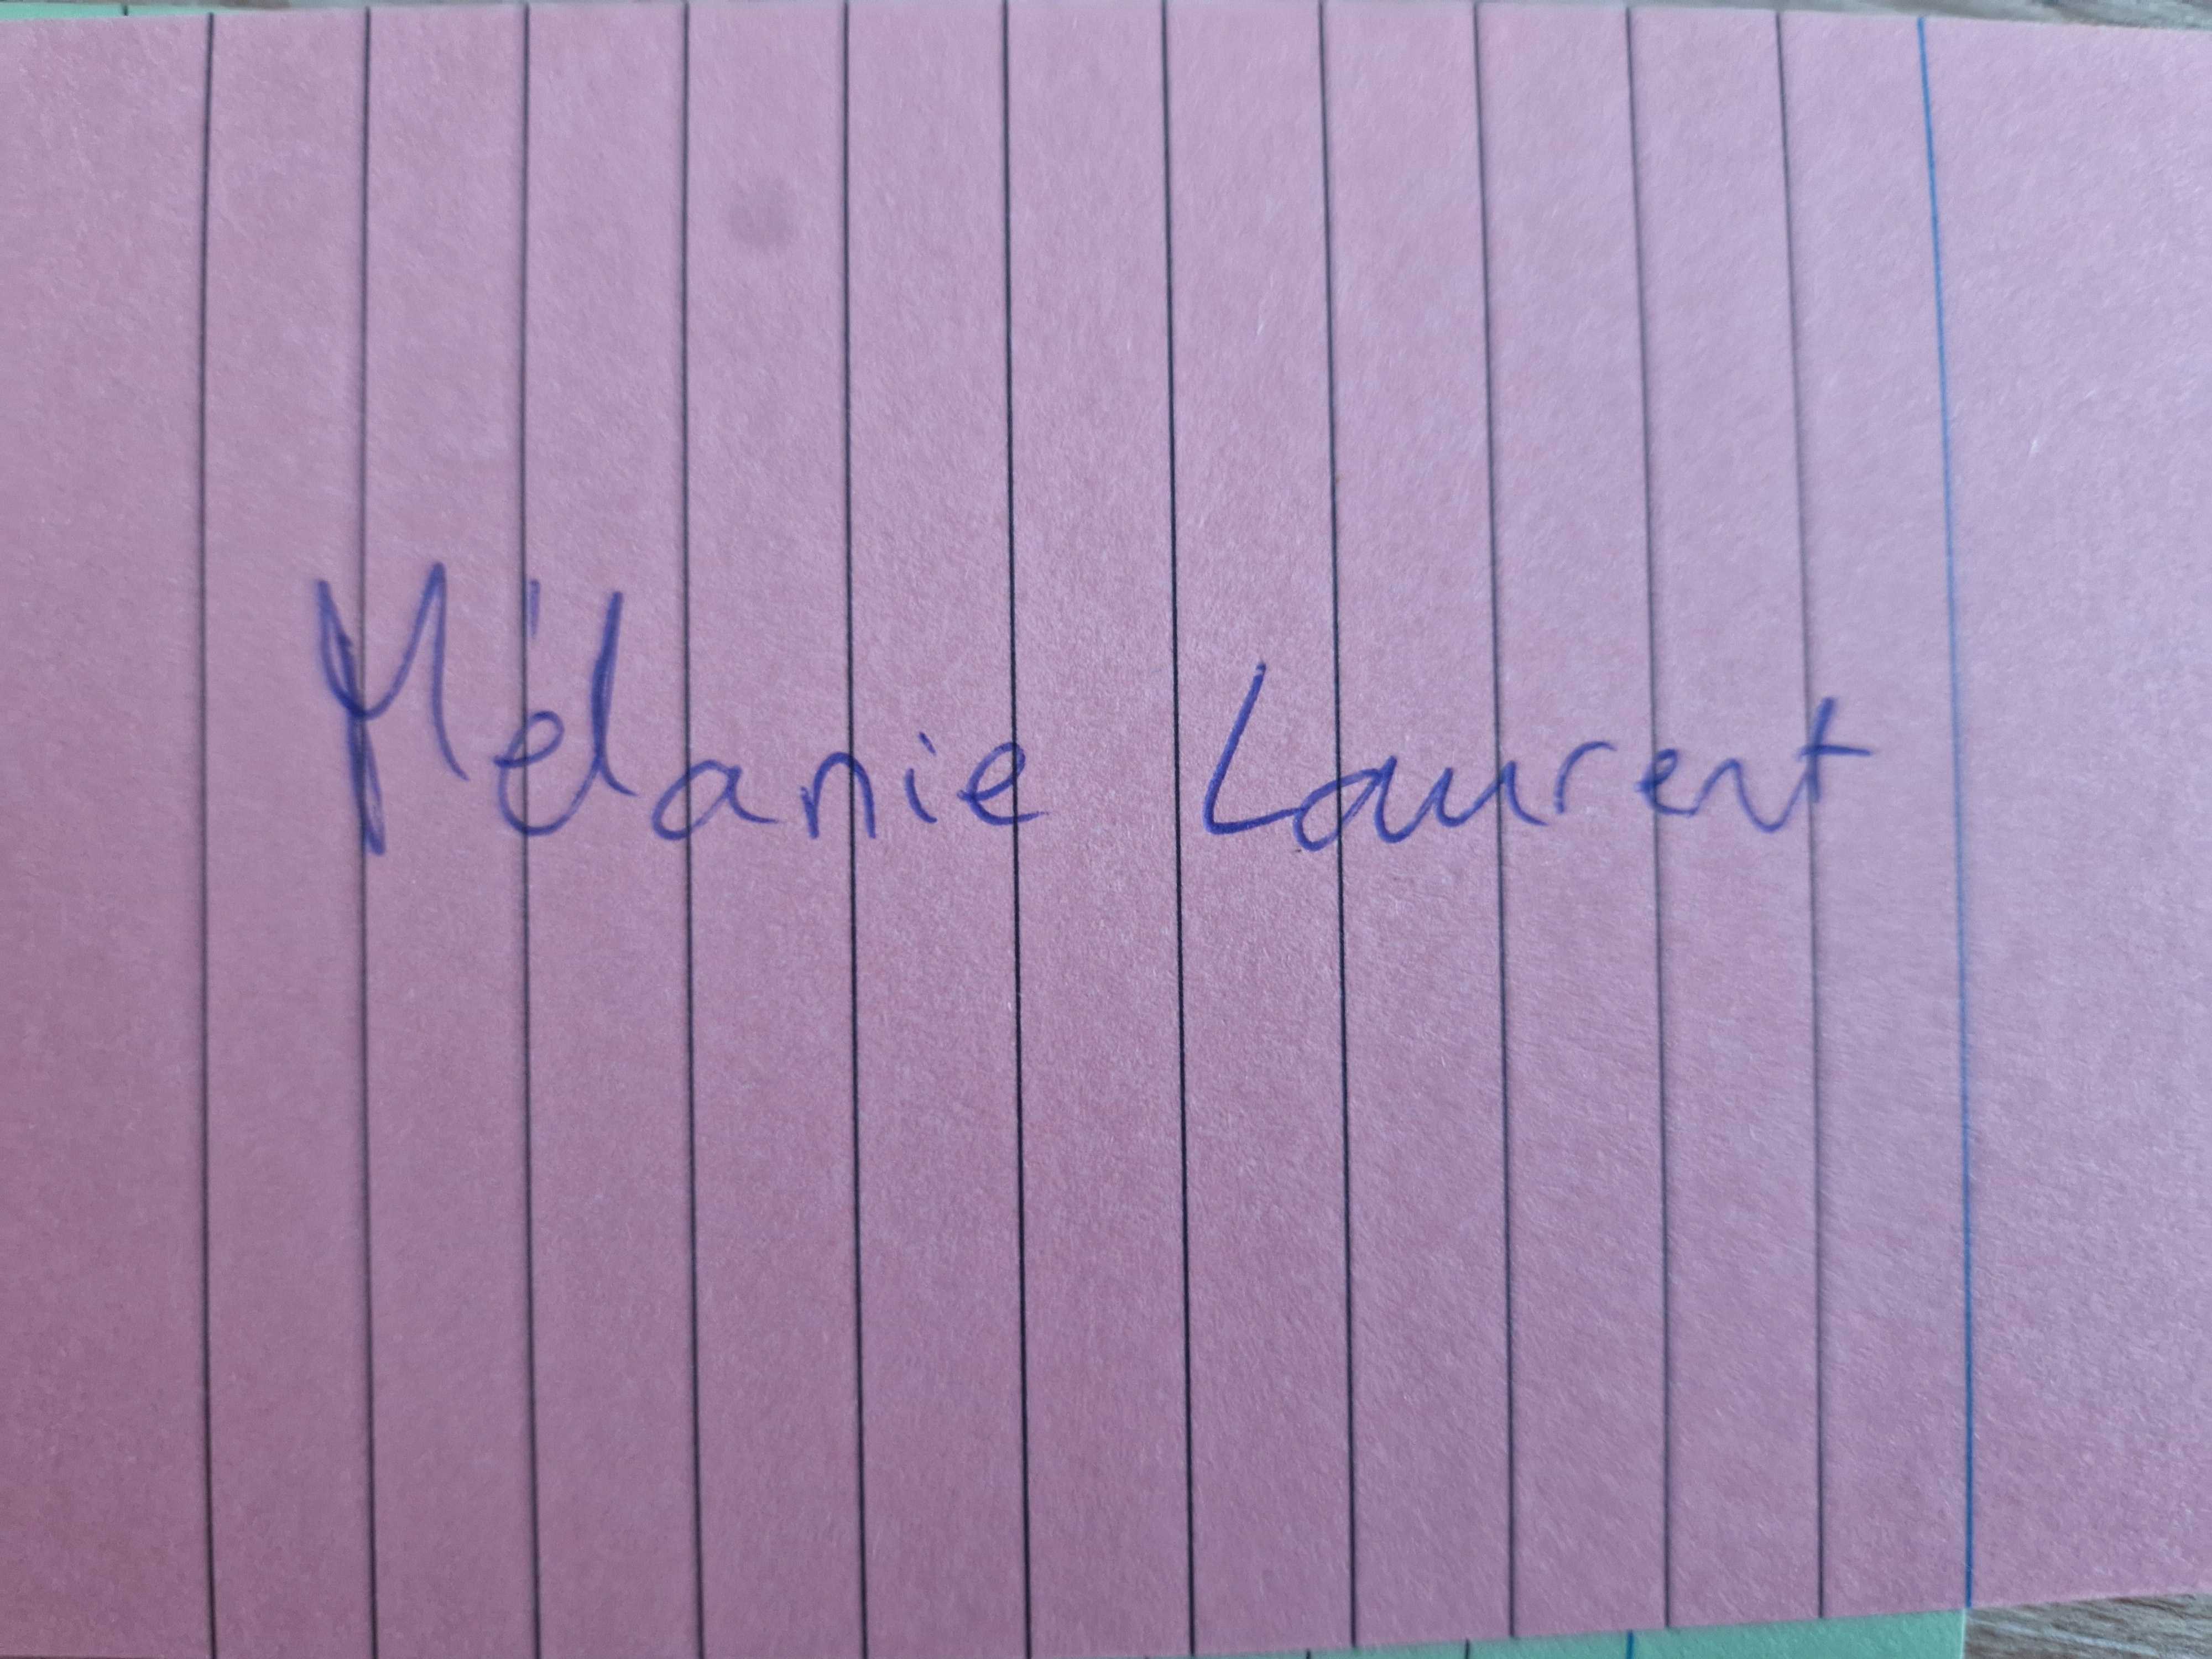 Mélanie Laurent